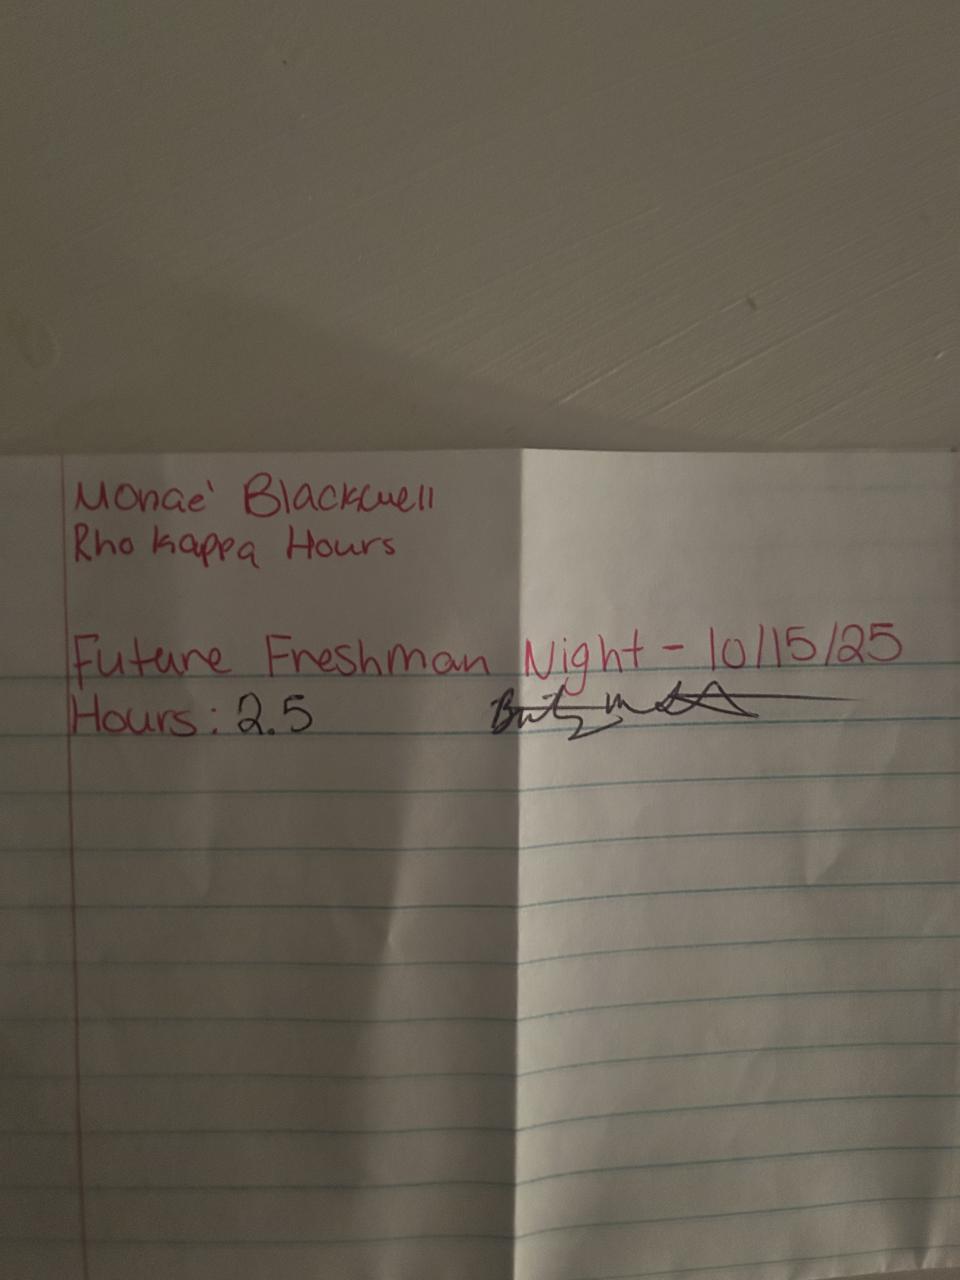 Monae' Blackwell
Rho Kappa Hours
Future Freshman Night - 10/15/25
Hours: 2.5